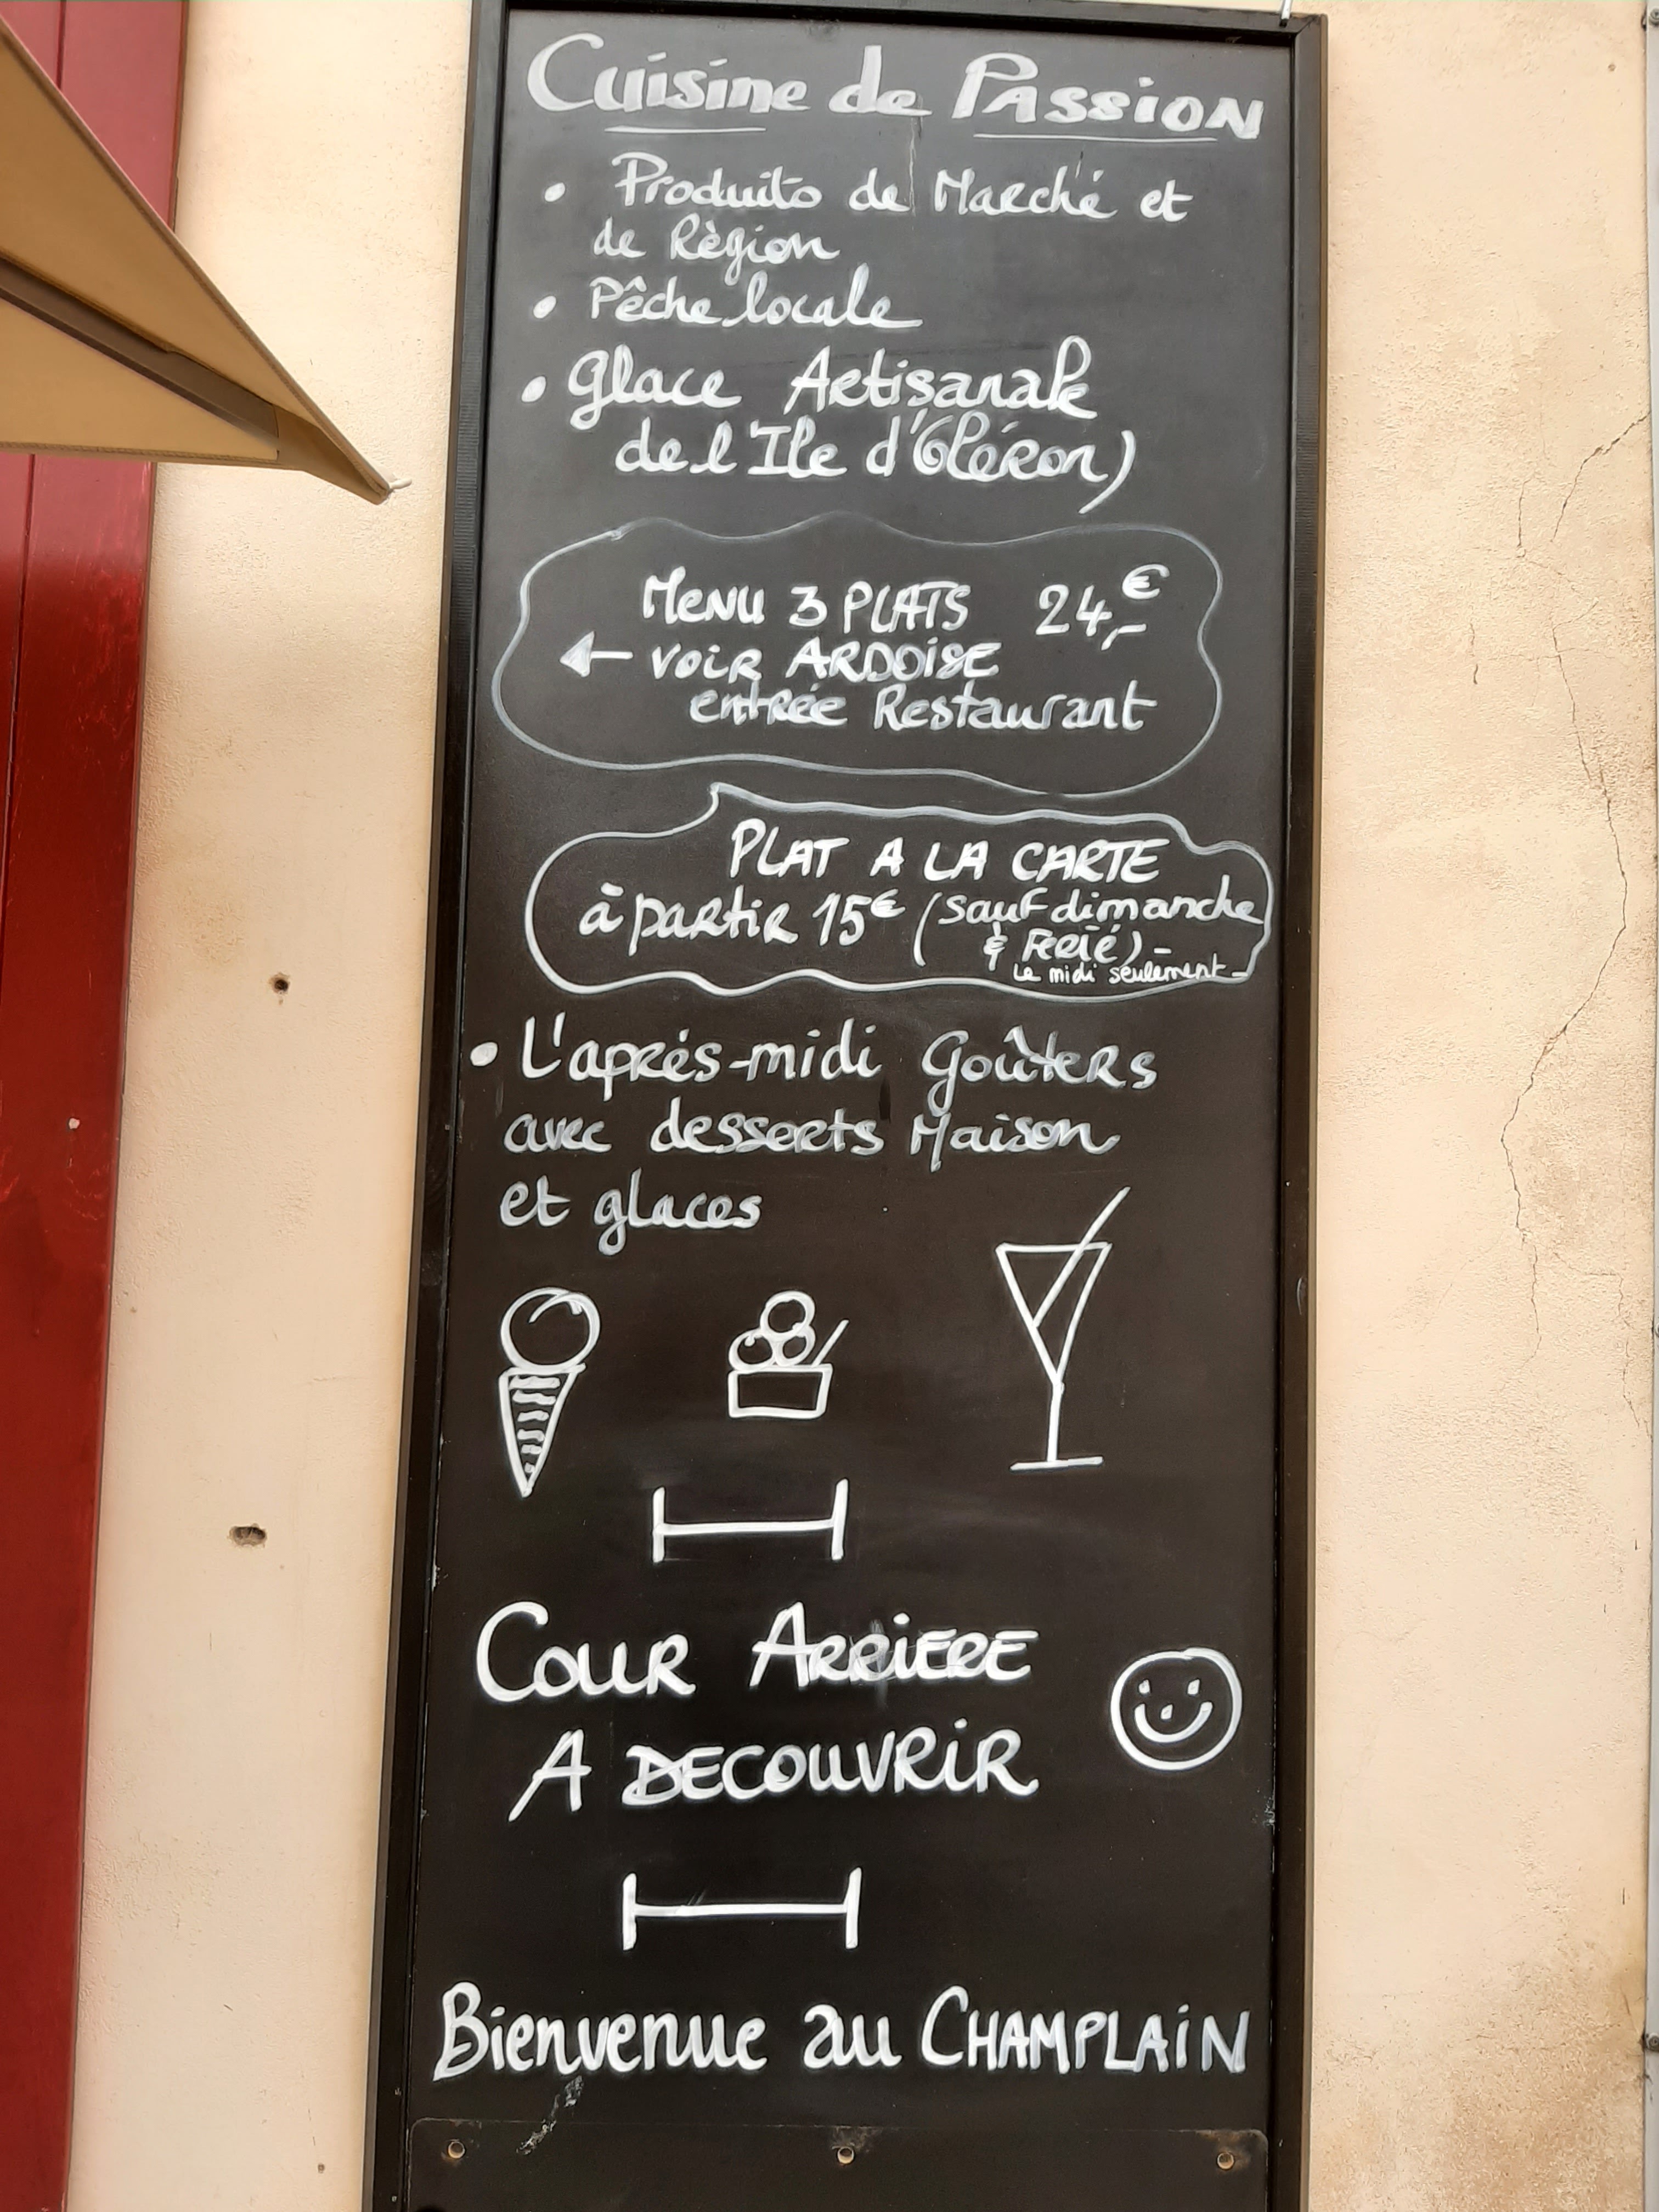 Cuisine de Passion
• Produits de Marché et
de Règion
• Pêche locale
• Glace Artisanale
de l'Ile d'Oléron)
Menu 3 PLATS 24,-€
← voir ARDOISE
entrée Restaurant
PLAT A LA CARTE
à partir 15€ (sauf dimanche
& Ferié)-
Le midi seulement-
• L'aprés-midi Goûters
avec desserts Maison
et glaces
Cour Arriere
A DECOUVRIR
Bienvenue au CHAMPLAIN